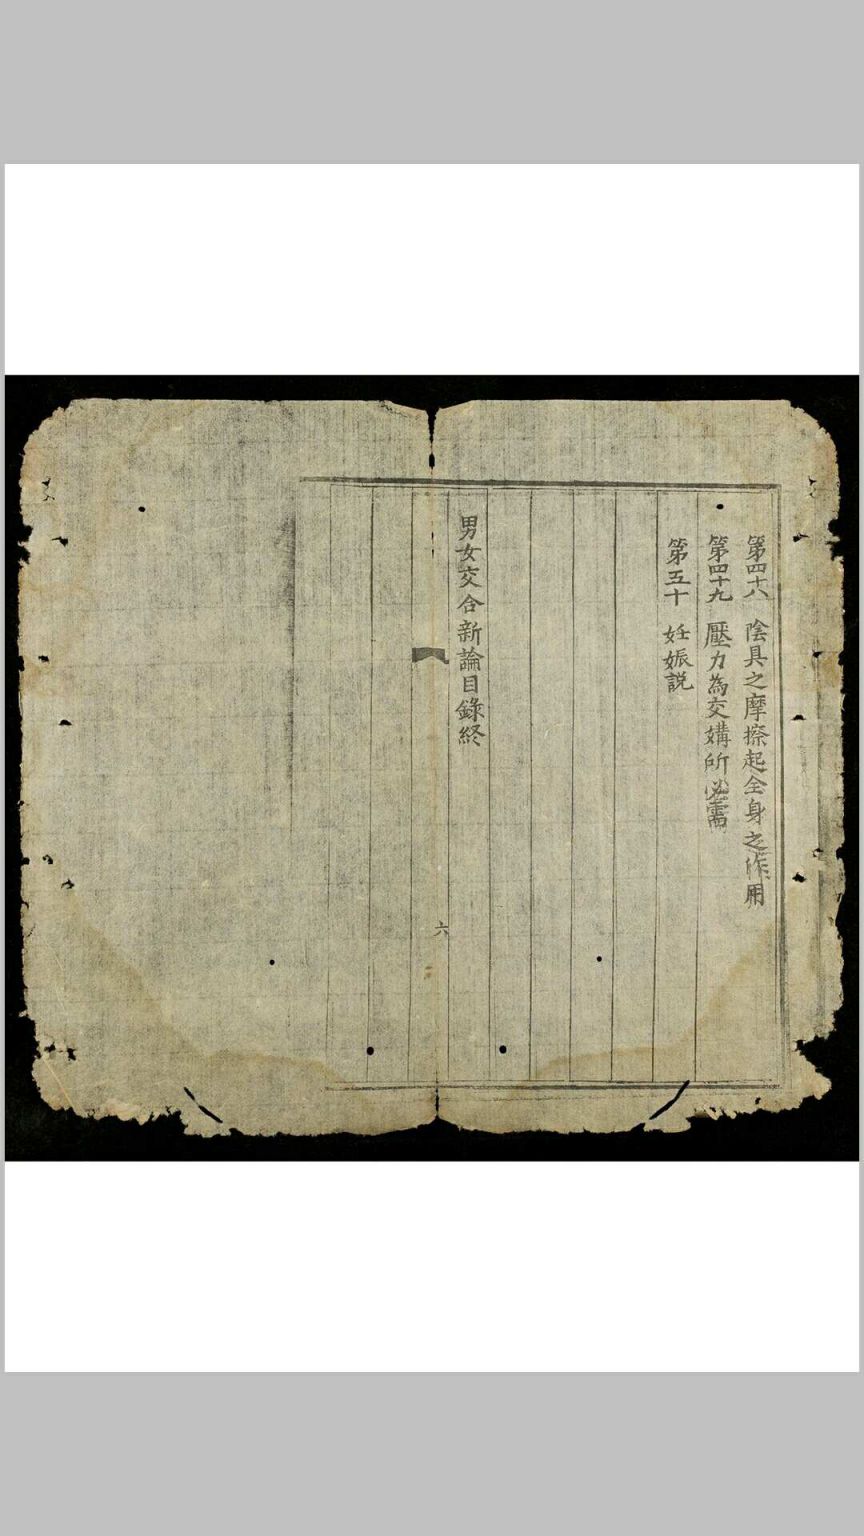 第四十八 陰具之摩擦起全身之作用
第四十九 壓力為交媾所必需
第五十 妊娠説
男女交合新論目錄終
六